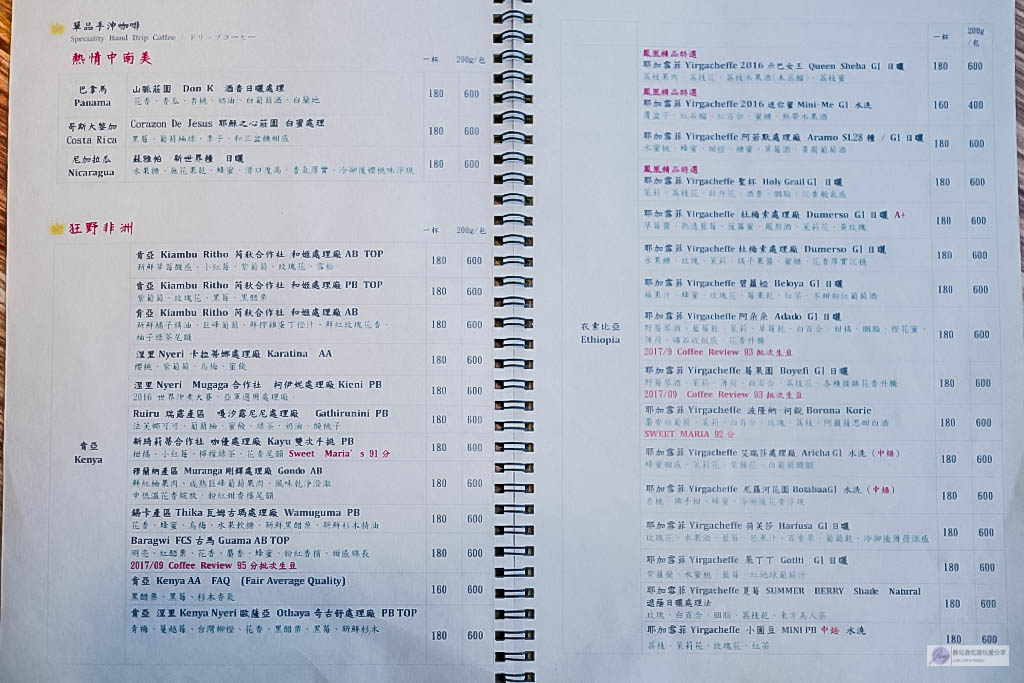 單品手沖咖啡
Speciality Hand Drip Coffee / ドリップコーヒー
熱情中南美 一杯 200g/包
巴拿馬 Panama
山脈莊園 Don K 酒香日曬處理 180 600
花香、青瓜、杏桃、奶油、白葡萄酒、白蘭地
哥斯大黎加 Costa Rica
Corazon De Jesus 耶穌之心莊園 白蜜處理 180 600
黑莓、葡萄柚綠、李子、和三盆糖甜感
尼加拉瓜 Nicaragua
蘇雅帕 新世界種 日曬 180 600
水果糖、無花果乾、蜂蜜、滑口度高、香氣厚實、冷卻後櫻桃味浮現
狂野非洲 一杯 200g/包
肯亞 Kenya
肯亞 Kiambu Ritho 芮秋合作社 和姬處理廠 AB TOP 180 600
新鮮草莓酸感、小紅莓、紫葡萄、玫瑰花、雪松
肯亞 Kiambu Ritho 芮秋合作社 和姬處理廠 PB TOP 180 600
紫葡萄、玫瑰花、黑莓、黑醋栗
肯亞 Kiambu Ritho 芮秋合作社 和姬處理廠 AB 180 600
新鮮橘子精油、巨峰葡萄、鮮榨雞蛋丁橙汁、鮮紅玫瑰花香、
柚子綠茶尾韻
涅里 Nyeri 卡拉蒂娜處理廠 Karatina AA 180 600
櫻桃、紫葡萄、烏梅、蜜餞
涅里 Nyeri Mugaga 合作社 柯伊妮處理廠 Kieni PB 180 600
2016 世界沖煮大賽，亞軍選用處理廠
Ruiru 瑞露產區 嘎汐露尼尼處理廠 Gathirunini PB 180 600
法芙娜可可、葡萄柚、蜜餞、綠茶、奶油、酸桃子
新琦莉蒂合作社 咖優處理廠 Kayu 雙次手挑 PB 180 600
柑橘、小紅莓、檸檬綠茶、花香尾韻 Sweet Maria's 91分
穆蘭納產區 Muranga 剛鐸處理廠 Gondo AB 180 600
鮮紅柚果肉、成熟巨峰葡萄果肉、風味乾淨澄澈
中低溫花香綻放、粉紅甜香檳尾韻
錫卡產區 Thika 瓦姆古瑪處理廠 Wamuguma PB 180 600
花香、蜂蜜、烏梅、水果軟糖、新鮮黑醋栗、新鮮杉木精油
Baragwi FCS 古馬 Guama AB TOP 180 600
明亮、紅醋栗、花香、麝香、蜂蜜、粉紅香檳、甜感綿長
2017/09 Coffee Review 95 分批次生豆
肯亞 Kenya AA FAQ (Fair Average Quality) 160 600
黑醋栗、黑莓、杉木香氣
肯亞 涅里 Kenya Nyeri 歐薩亞 Othaya 奇古舒處理廠 PB TOP 180 600
青梅、蔓越莓、台灣柳橙、花香、黑醋栗、黑莓、新鮮杉木
一杯 200g/包
衣索比亞 Ethiopia
鳳凰精品特選
耶加雪菲 Yirgacheffe 2016 示巴女王 Queen Sheba G1 日曬 180 600
荔枝果肉、荔枝花、荔枝水果酒(未蒸餾)、荔枝蜜
鳳凰精品特選
耶加雪菲 Yirgacheffe 2016 迷你蜜 Mini-Me G1 水洗 160 400
覆盆子、紅石榴、紅百合、蜜糖、熱帶水果酒
耶加雪菲 Yirgacheffe 阿若默處理廠 Aramo SL28 種 / G1 日曬 180 600
水蜜桃、蜂蜜、甜橙、糖蜜、草莓酒、貴腐葡萄酒
鳳凰精品特選
耶加雪菲 Yirgacheffe 聖杯 Holy Grail G1 日曬 180 600
茉莉、荔枝花、牡丹花、酒香、胭脂、沉香酸氣感
耶加雪菲 Yirgacheffe 杜梅索處理廠 Dumerso G1 日曬 A+ 180 600
草莓醬、熟透藍莓、菠蘿蜜、鳳梨酒、茉莉花、黃玫瑰
耶加雪菲 Yirgacheffe 杜梅索處理廠 Dumerso G1 日曬 180 600
水果糖、玫瑰、茉莉、橘子果醬、蜜糖、花香厚實沉穩
耶加雪菲 Yirgacheffe 碧蘿婭 Beloya G1 日曬 180 600
蘋果汁、蜂蜜、玫瑰花、莓果乾、紅茶、不甜粉紅葡萄酒
耶加雪菲 Yirgacheffe 阿朵朵 Adado G1 日曬 180 600
野莓琴酒、藍莓乾、茉莉、草莓乾、白百合、柑橘、胭脂、橙花蜜、
薄荷、礦石收斂感、花香升騰
2017/9 Coffee Review 93 批次生豆
耶加雪菲 Yirgacheffe 莓果園 Boyefi G1 日曬 180 600
野莓琴酒、茉莉、薄荷、白百合、荔枝花、各種複雜花香升騰
2017/09 Coffee Review 93 批次生豆
耶加雪菲 Yirgacheffe 波隆納-柯銳 Borona Korie 180 600
麝香白葡萄、茉莉、白百合、玫瑰、荔枝、阿爾薩思甜白酒
SWEET MARIA 92 分
耶加雪菲 Yirgacheffe 艾瑞莎處理廠 Aricha G1 水洗（中焙） 180 600
蜂蜜甜感、茉莉花、紫藤花、白葡萄酸韻
耶加雪菲 Yirgacheffe 尼羅河花園 BotabaaG1 水洗（中焙） 180 600
杏桃、佛手柑、蜂蜜、冷卻後花香浮現
耶加雪菲 Yirgacheffe 荷芙莎 Harfusa G1 日曬 180 600
玫瑰花、水果酒、藍莓、芒果汁、百香果、葡萄乾、冷卻後薄荷涼感
耶加雪菲 Yirgacheffe 果丁丁 Gotiti G1 日曬 180 600
紫羅蘭、水蜜桃、藍莓、紅地球葡萄汁
耶加雪菲 Yirgacheffe 夏莓 SUMMER BERRY Shade Natural 180 600
遮蔭日曬處理法
玫瑰、白百合、胭脂、荔枝乾、東方美人茶
耶加雪菲 Yirgacheffe 小圓豆 MINI PB 中焙 水洗 180 600
荔枝、茉莉花、玫瑰花、紅茶